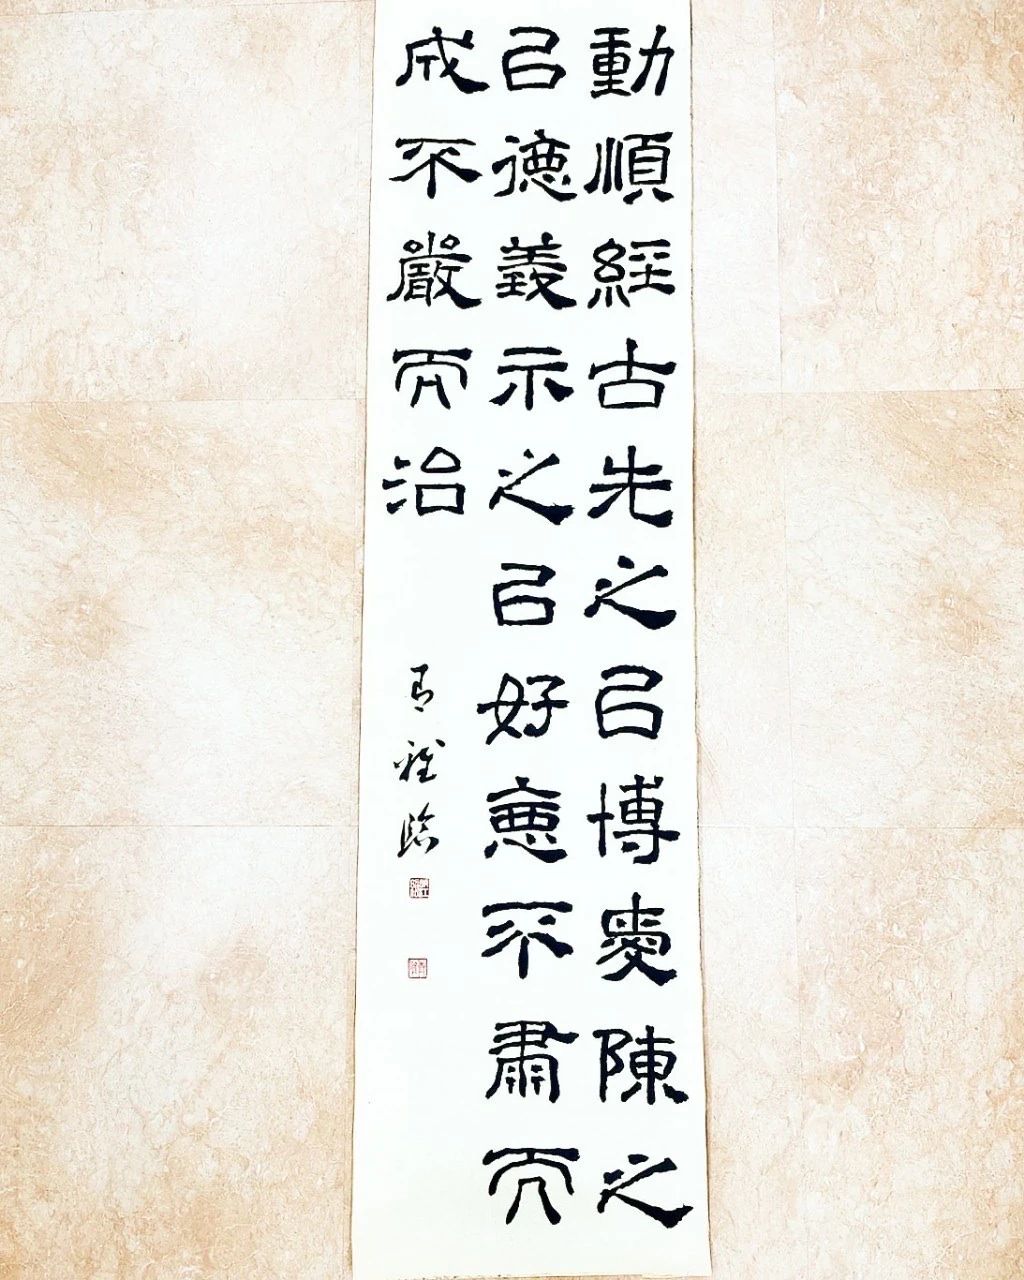 動順經古先之㠯博愛陳之
㠯德義示之㠯好惡不肅而
成不嚴而治
臨